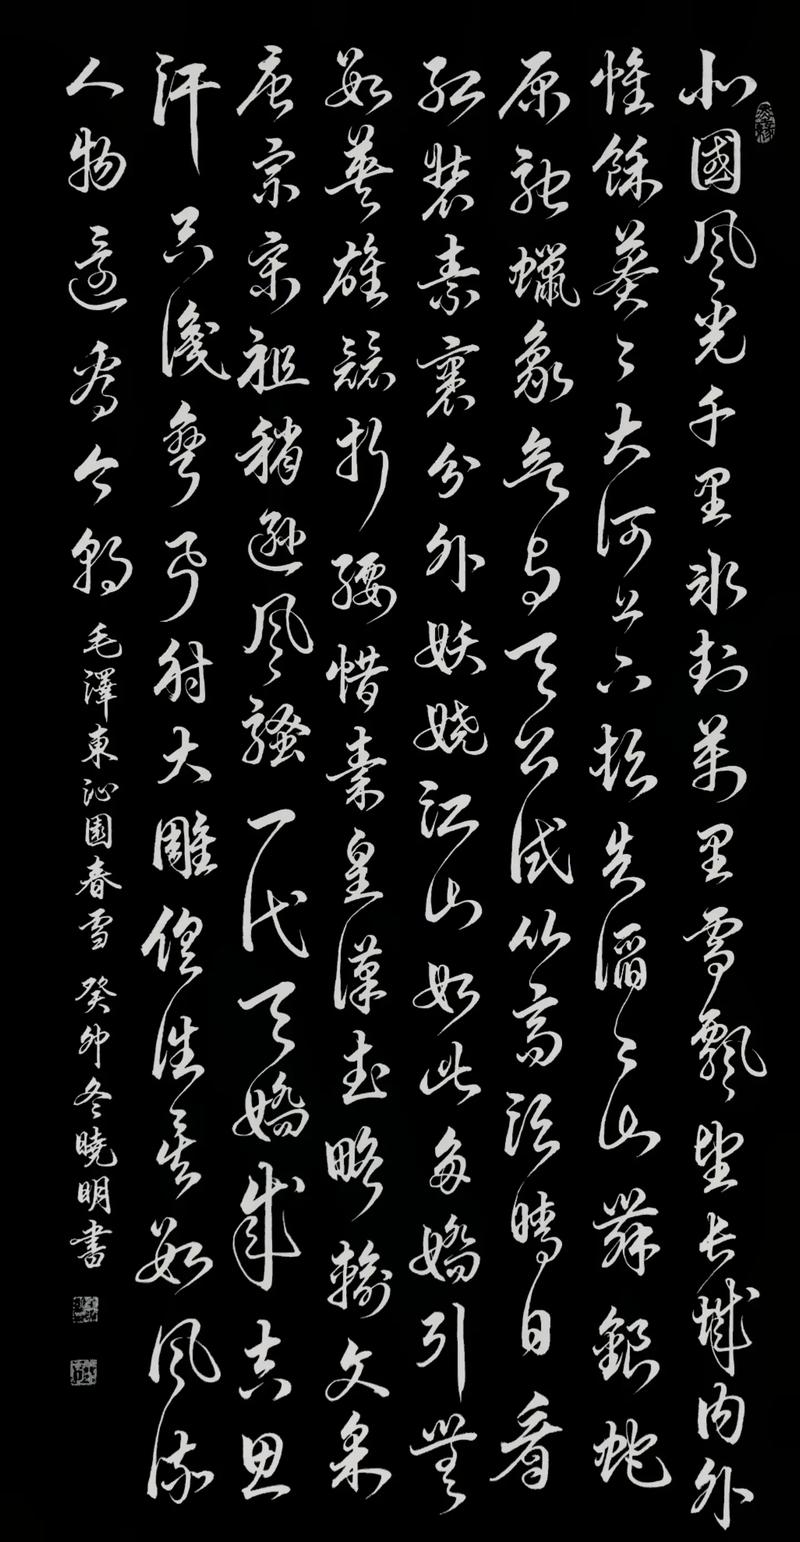 北國風光千里冰封萬里雪飄望長城內外
惟餘莽々大河上下頓失滔々山舞銀蛇
原馳蠟象欲与天公試比高須晴日看
紅裝素裹分外妖嬈江山如此多嬌引無
數英雄競折腰惜秦皇漢武略輸文采
唐宗宋祖稍遜風騷一代天嬌成吉思
汗只識彎弓射大雕俱往矣數風流
人物還看今朝 毛澤東沁園春雪 癸卯冬曉明書